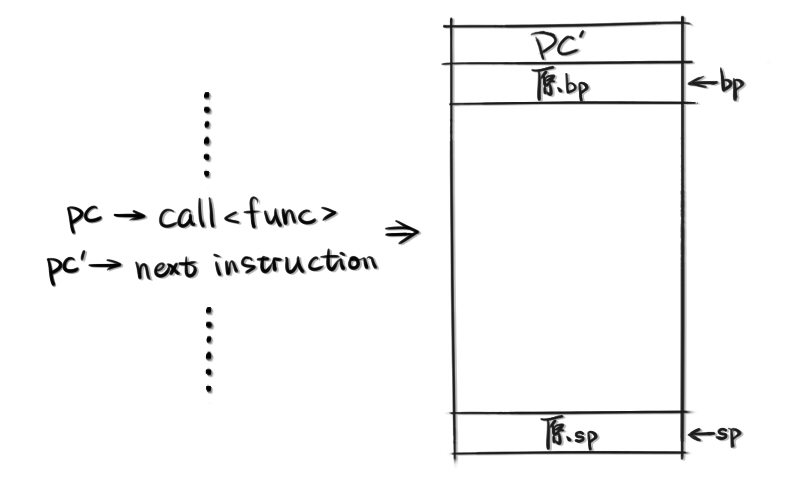 pc → call <func>
pc' → next instruction
⇒
PC'
原.bp
← bp
原.sp
← sp